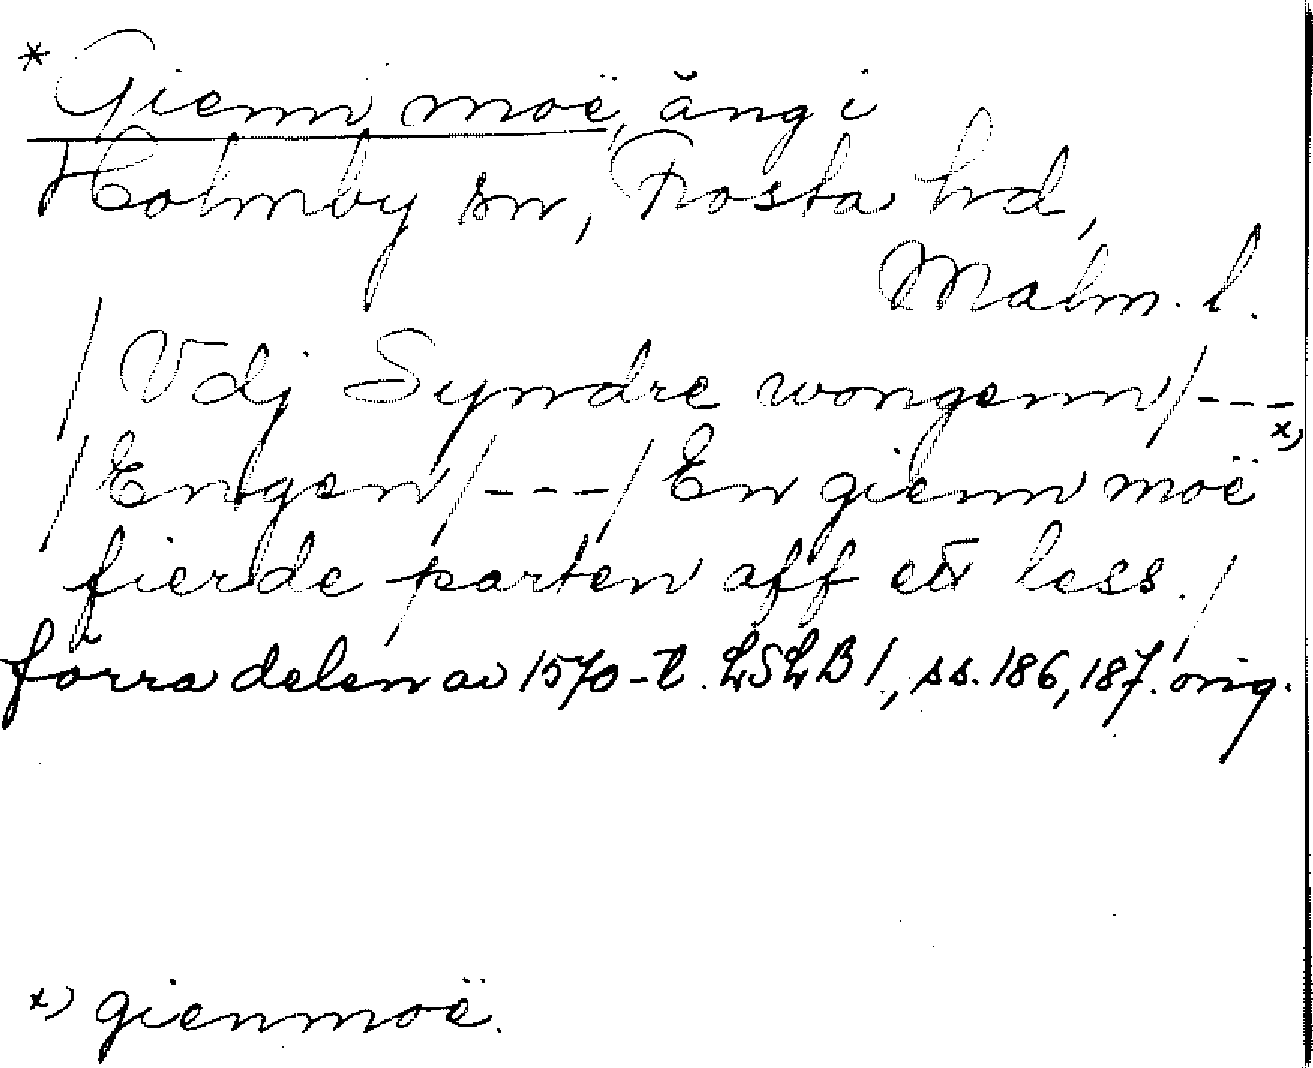 * Gienn moë, äng i
Holmby sn, Frosta hd,
Malm. l.
/Vdj Syndre wongenn/---
/Engen/---/En gienn moë x)
fierde parten aff ett less./
förra delen av 1570-t. LSLB 1, ss. 186, 187. orig.
x) gienmoë.